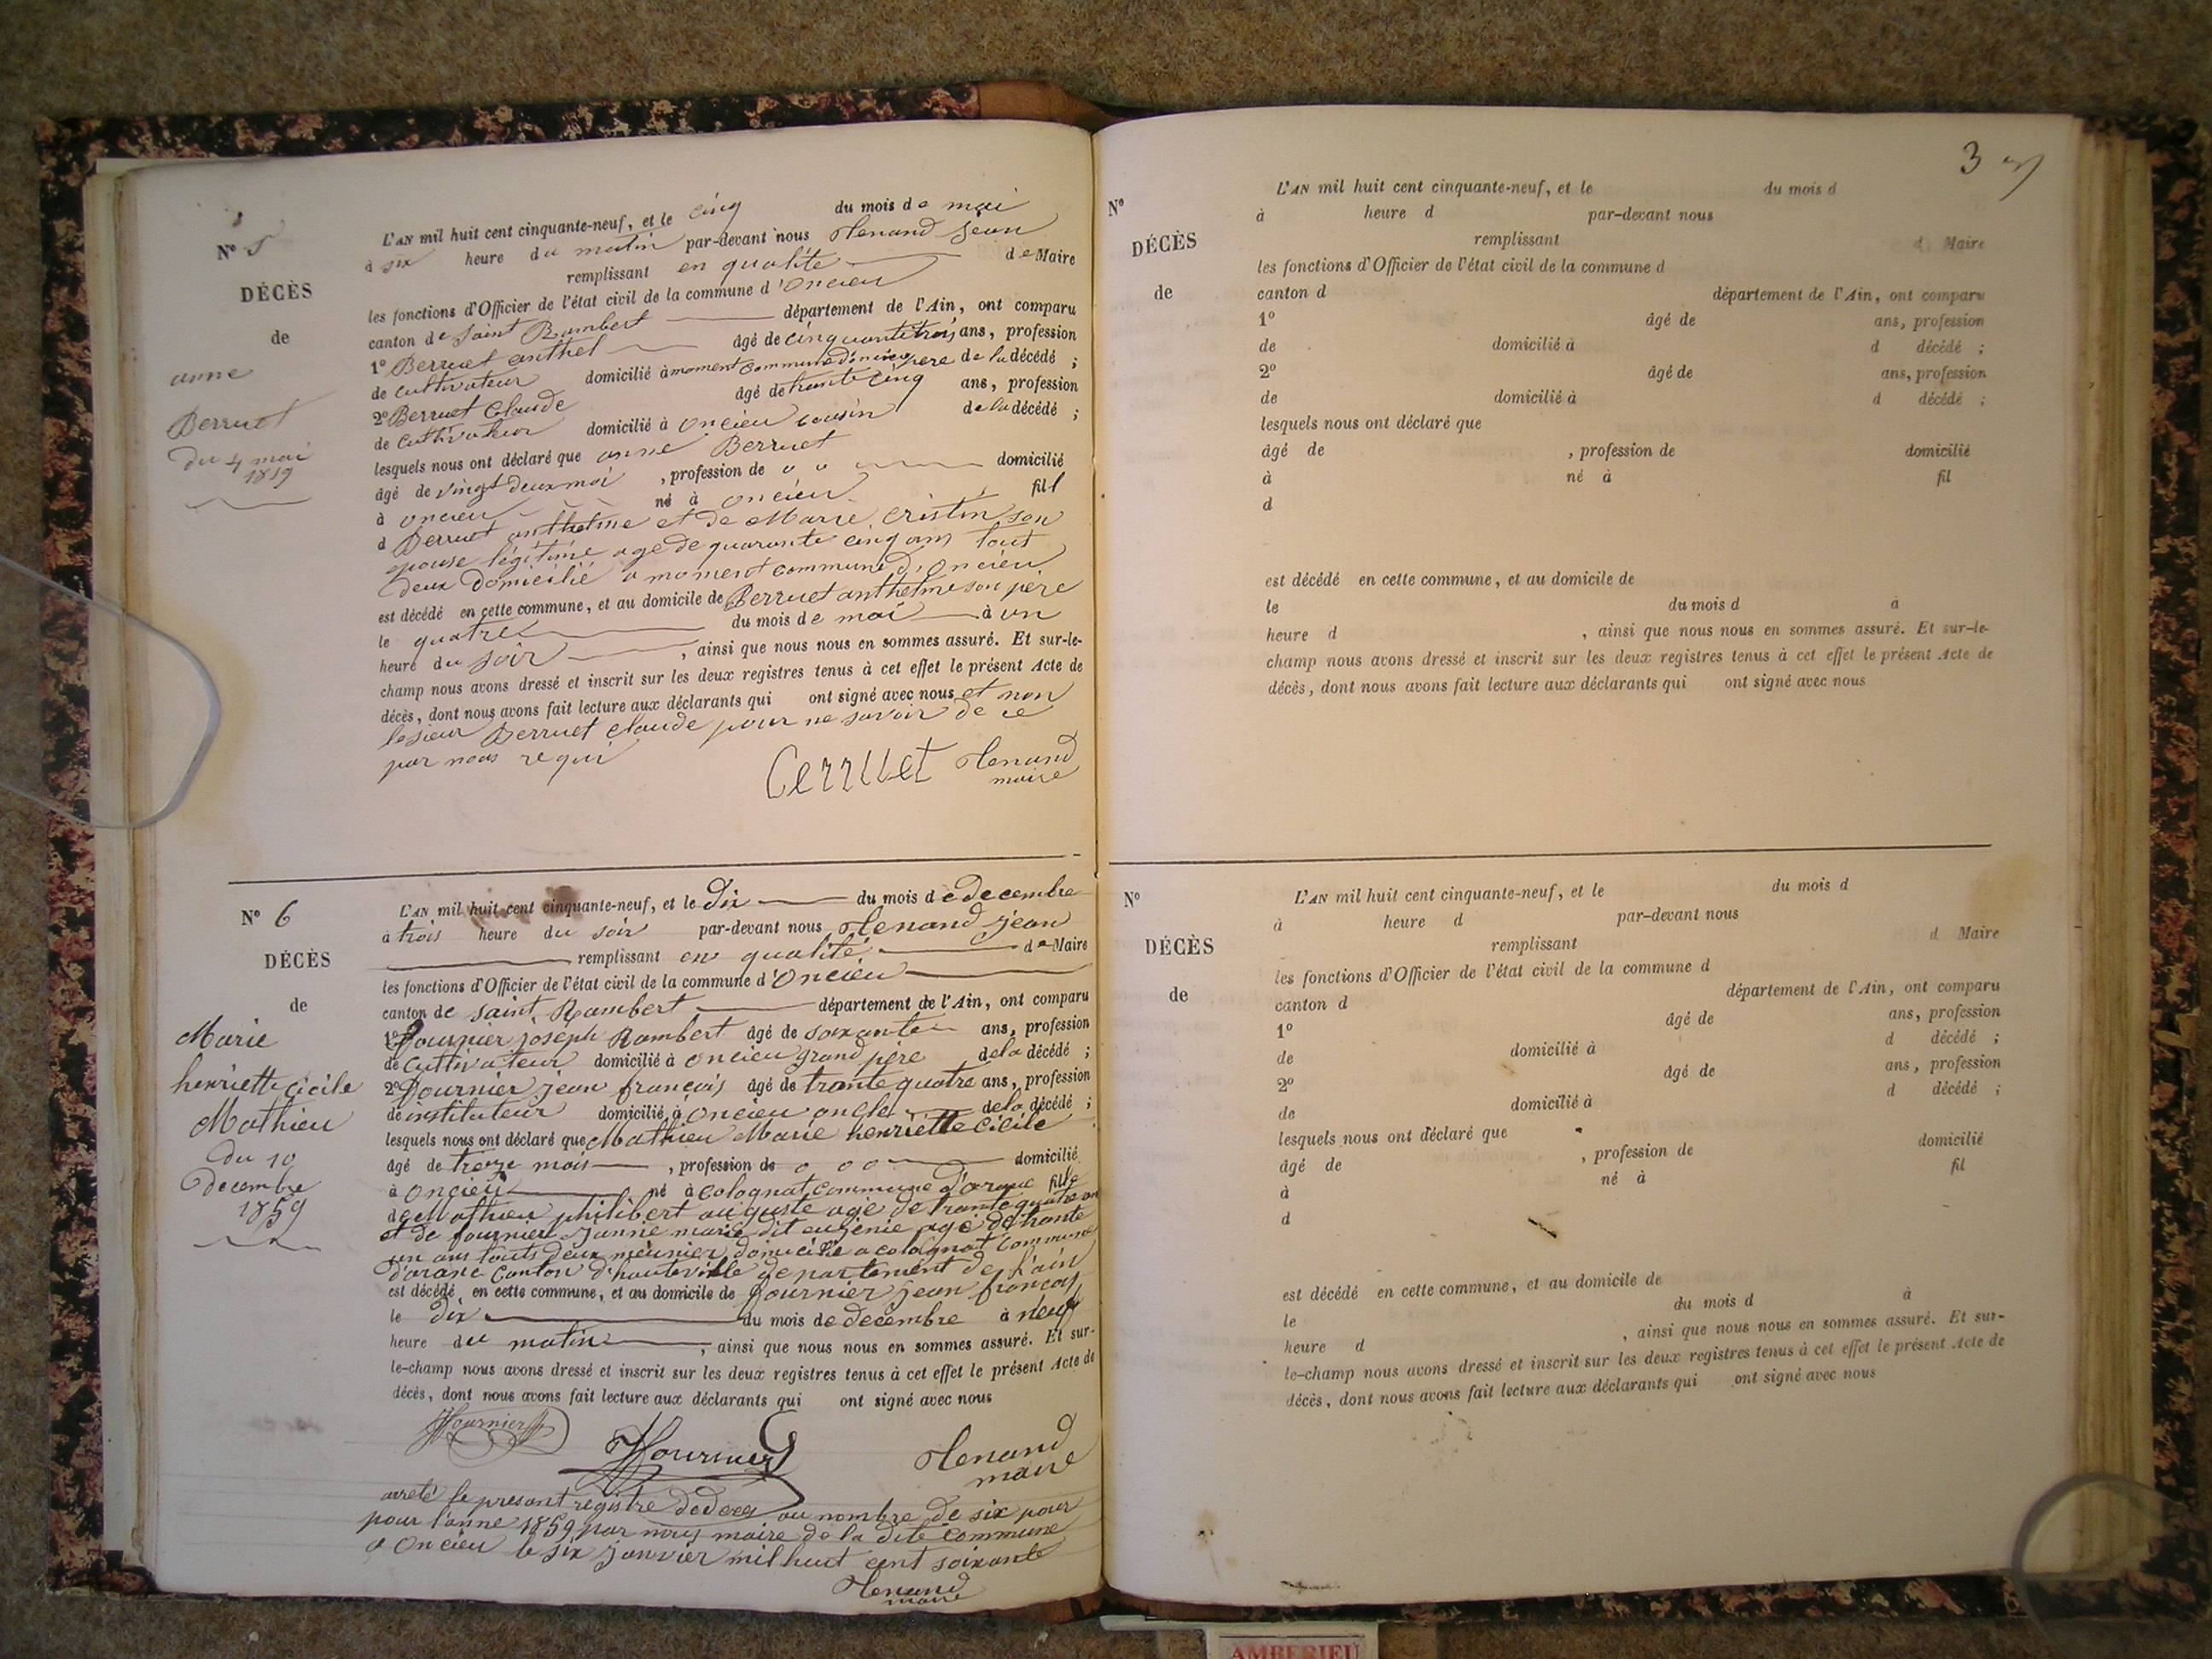 N° 5
DÉCÈS
de
anne
Berruet
du 4 mai
1859
L'AN mil huit cent cinquante-neuf, et le cinq du mois de mai
à six heure du matin par-devant nous Tenand Jean
remplissant en qualité de Maire
les fonctions d'Officier de l'état civil de la commune d'Oncieu
canton de Saint Rambert département de l'Ain, ont comparu
1° Berruet anthel âgé de cinquante trois ans, profession
de cultivateur domicilié à moment commune d'oncieu pere de la décédé ;
2° Berruet Claude âgé de trante cinq ans, profession
de Cultivateur domicilié à Oncieu cousin de la décédé ;
lesquels nous ont déclaré que anne Berruet
âgé de vingt deux moi , profession de domicilié
à oncieu né à oncieu fill
d Berruet anthelme et de Marie Cristin son
epouse légitime age de quarante cinq ans tout
deux domicilié a moment commune d'Oncieu
est décédé en cette commune, et au domicile de Berruet anthelme son père
le quatre du mois de mai à un
heure du soir , ainsi que nous nous en sommes assuré. Et sur-le-
champ nous avons dressé et inscrit sur les deux registres tenus à cet effet le présent Acte de
décès, dont nous avons fait lecture aux déclarants qui ont signé avec nous et non
le sieur Berruet Claude pour ne savoir de ce
par nous requi
Berruet Tenand
maire
N° 6
DÉCÈS
de
Marie
henriette Cicile
Mathieu
du 10
Decembre
1859
L'AN mil huit cent cinquante-neuf, et le dix du mois de decembre
à trois heure du soir par-devant nous Tenand jean
remplissant en qualité de Maire
les fonctions d'Officier de l'état civil de la commune d'Oncieu
canton de saint Rambert département de l'Ain, ont comparu
1° fournier joseph Rambert âgé de soixante ans, profession
de Cultivateur domicilié à Oncieu grand père de la décédé ;
2° fournier jean françois âgé de trante quatre ans, profession
de instituteur domicilié à Oncieu oncle de la décédé ;
lesquels nous ont déclaré que Mathieu Marie henriette Cicile
âgé de treize mois , profession de domicilié
à Oncieu né à Colognat commune d'arane fille
de Mathieu philibert auguste agé de trante quatre an
et de fournier Jannie marie dit eugenie agé de trante
un ans touts deux meunier domicilié a colognat commune
d'arane Canton d'hauteville departement de l'ain
est décédé en cette commune, et au domicile de fournier jean françois
le dix du mois de decembre à neuf
heure du matin , ainsi que nous nous en sommes assuré. Et sur-
le-champ nous avons dressé et inscrit sur les deux registres tenus à cet effet le présent Acte de
décès, dont nous avons fait lecture aux déclarants qui ont signé avec nous
fournier
fournier Tenand
maire
arreté le present registre de deces au nombre de six pour
pour l'anne 1859 par nous maire de la dite commune
a Oncieu le six janvier mil huit cent soixante
Tenand
maire
3
N°
DÉCÈS
de
L'AN mil huit cent cinquante-neuf, et le du mois d
à heure d par-devant nous
remplissant d Maire
les fonctions d'Officier de l'état civil de la commune d
canton d département de l'Ain, ont comparu
1° âgé de ans, profession
de domicilié à d décédé ;
2° âgé de ans, profession
de domicilié à d décédé ;
lesquels nous ont déclaré que
âgé de , profession de domicilié
à né à fil
d
est décédé en cette commune, et au domicile de
le du mois d à
heure d , ainsi que nous nous en sommes assuré. Et sur-le-
champ nous avons dressé et inscrit sur les deux registres tenus à cet effet le présent Acte de
décès, dont nous avons fait lecture aux déclarants qui ont signé avec nous
N°
DÉCÈS
de
L'AN mil huit cent cinquante-neuf, et le du mois d
à heure d par-devant nous
remplissant d Maire
les fonctions d'Officier de l'état civil de la commune d
canton d département de l'Ain, ont comparu
1° âgé de ans, profession
de domicilié à d décédé ;
2° âgé de ans, profession
de domicilié à d décédé ;
lesquels nous ont déclaré que
âgé de , profession de domicilié
à né à fil
d
est décédé en cette commune, et au domicile de
le du mois d à
heure d , ainsi que nous nous en sommes assuré. Et sur-
le-champ nous avons dressé et inscrit sur les deux registres tenus à cet effet le présent Acte de
décès, dont nous avons fait lecture aux déclarants qui ont signé avec nous
AMBERIEU